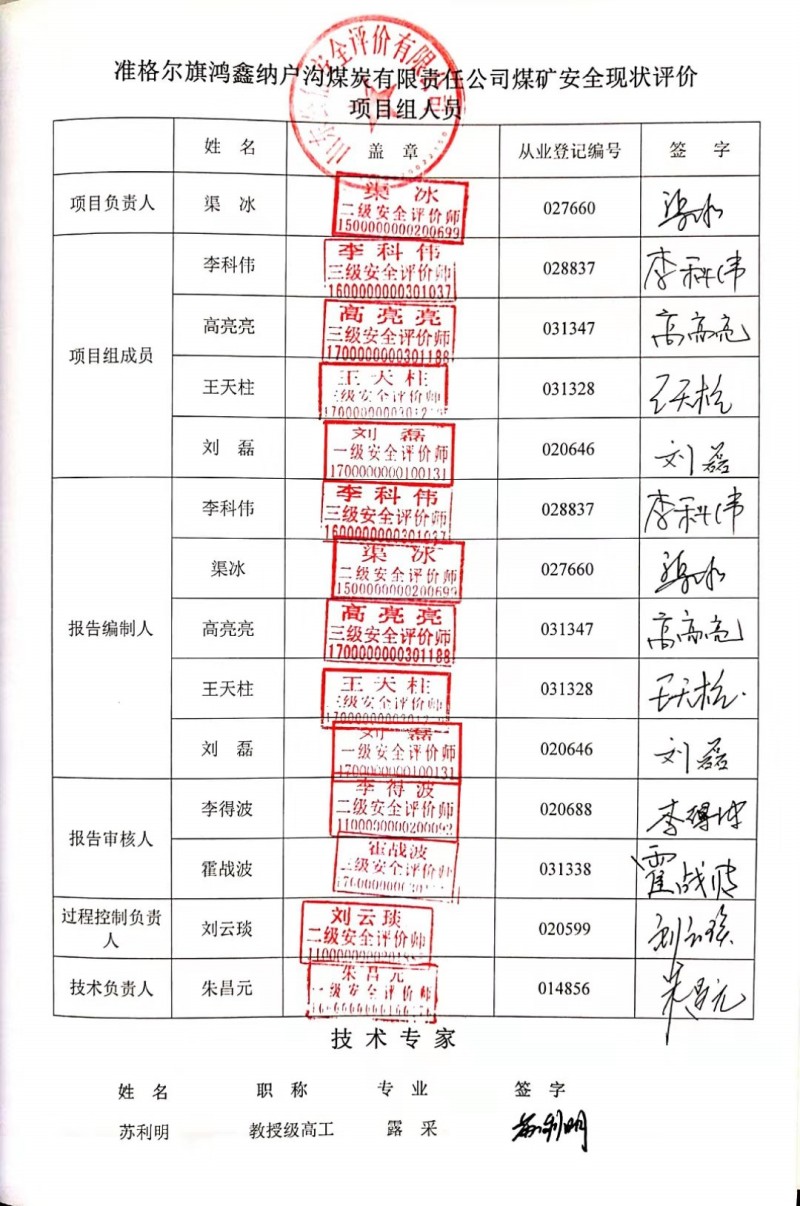 准格尔旗鸿鑫纳户沟煤炭有限责任公司煤矿安全现状评价
项目组人员
安全评价有限公司
姓 名 盖 章 从业登记编号 签 字
项目负责人 渠 冰 渠 冰 二级安全评价师 1500000000200699 027660 渠冰
项目组成员
李科伟 李科伟 三级安全评价师 1600000000301037 028837 李科伟
高亮亮 高亮亮 三级安全评价师 1700000000301188 031347 高亮亮
王天柱 王天柱 三级安全评价师 031328 王天柱
刘 磊 刘 磊 一级安全评价师 1700000000100131 020646 刘磊
报告编制人
李科伟 李科伟 三级安全评价师 1600000000301037 028837 李科伟
渠冰 渠 冰 二级安全评价师 1500000000200699 027660 渠冰
高亮亮 高亮亮 三级安全评价师 1700000000301188 031347 高亮亮
王天柱 王天柱 三级安全评价师 031328 王天柱
刘 磊 刘 磊 一级安全评价师 1700000000100131 020646 刘磊
报告审核人
李得波 李得波 二级安全评价师 1100000000200092 020688 李得波
霍战波 霍战波 三级安全评价师 031338 霍战波
过程控制负责人 刘云琰 刘云琰 二级安全评价师 020599 刘云琰
技术负责人 朱昌元 朱昌元 一级安全评价师 014856 朱昌元
技术专家
姓 名 职 称 专 业 签 字
苏利明 教授级高工 露 采 苏利明